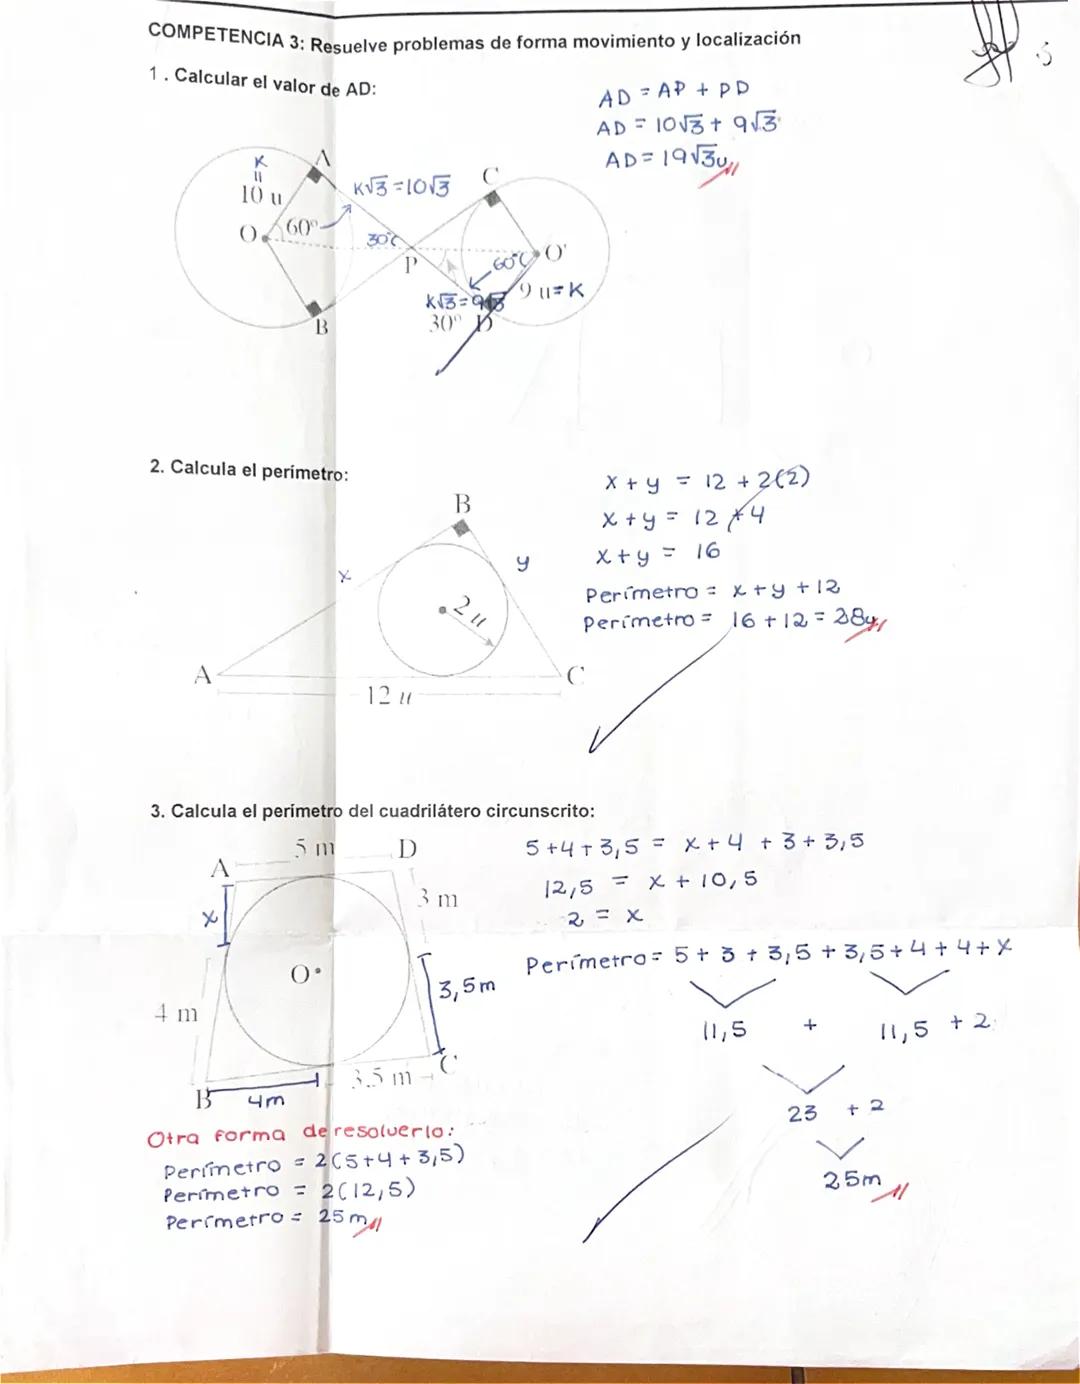 COMPETENCIA 3: Resuelve problemas de forma movimiento y localización
1. Calcular el valor de AD:
AD = AP + PD
AD = 10√3 + 9√3
AD = 19√3u
K
=
10 u
A
K√3 = 10√3
C
O
60°
30°
P
60°
O'
K√3 = 9√3
9 u = K
30°
D
B
2. Calcula el perímetro:
x + y = 12 + 2(2)
x + y = 12 + 4
x + y = 16
Perímetro = x + y + 12
Perímetro = 16 + 12 = 28u
B
x
y
2 u
A
C
12 u
3. Calcula el perímetro del cuadrilátero circunscrito:
5 m
A
D
3 m
x
O
3,5m
4 m
B
4m
3.5 m
C
5 + 4 + 3,5 = x + 4 + 3 + 3,5
12,5 = x + 10,5
2 = x
Perímetro = 5 + 3 + 3,5 + 3,5 + 4 + 4 + x
11,5 + 11,5 + 2
23 + 2
25m
Otra forma de resolverlo:
Perímetro = 2(5+4+3,5)
Perímetro = 2(12,5)
Perímetro = 25 m